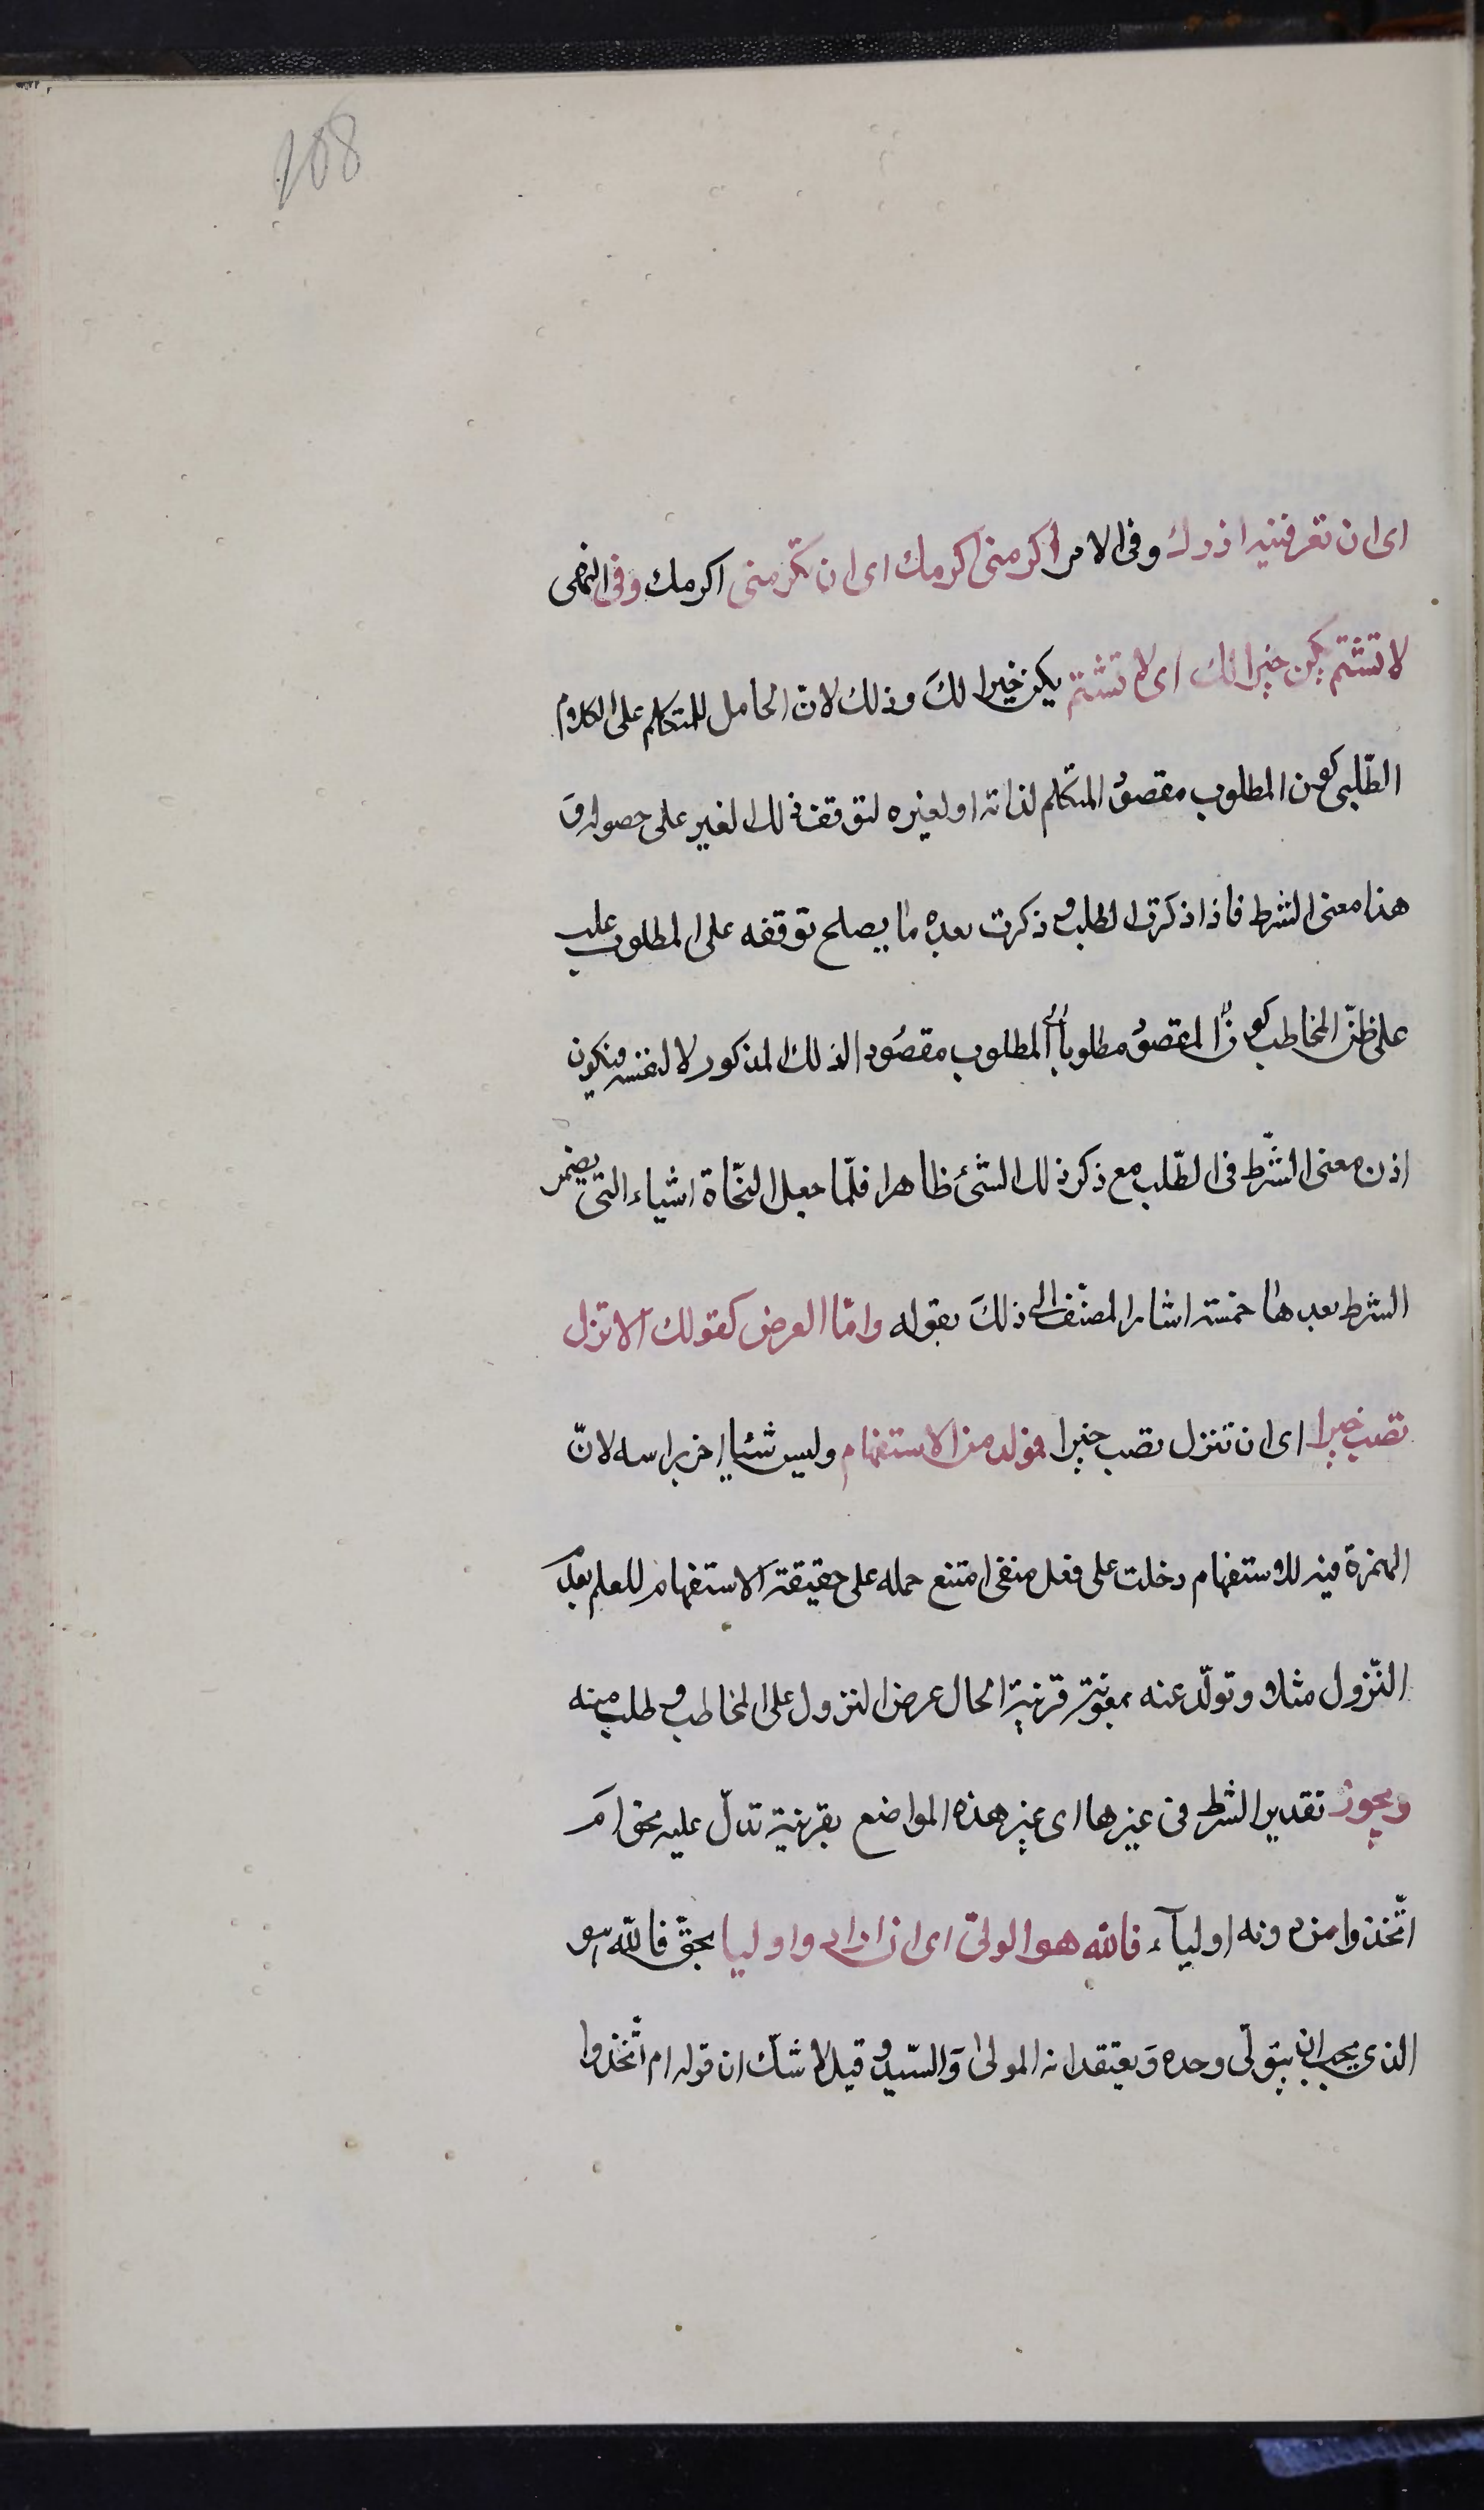 108
اى ان تعرفنيه ازرك وفى الامر اكرمنى اكرمك اى ان تكرمنى اكرمك وفى النهى
لا تشتم يكن خيرا لك اى لا تشتم يكن خيرا لكَ وذلك لانّ الحامل للمتكلم على الكلام
الطّلبى كون المطلوب مقصودُ المتكلم لذاته او لغيره لتوقف ذلك الغير على حصوله وَ
هذا معنى الشرط فاذا ذكرت الطلب وذكرت بعده ما يصلح توقفه على المطلوب غلب
على ظنّ المخاطب كون المقصودُ مطلوباً اى المطلوب مقصُودا لذلك المذكور لا لنفسه فيكون
اذن معنى الشّرط فى الطّلب مع ذكر ذلك الشّئ ظاهرا فلمّا جعل النحّاة اشياء التى يضمر
الشرط بعدها خمسة اشار المصنّف الى ذلكَ بقوله وامّا العرض كقولك الا تنزل
تصب خيرا اى ان تنزل تصب خيرا فمولد من الاستفهام وليس شئا اخر براسه لانّ
الهمزة فيه للاستفهام دخلت على فعل منفى امتنع حمله على حقيقة الاستفهام للعلم بعدم
النّزول مثلا وتولّد عنه بمعونة قرينة الحال عرض النزول على المخاطب وطلب منه
ويجوز تقدير الشرط فى غيرها اى غير هذه المواضع بقرينة تدلّ عليه نحو امَ
اتّخذوا من دونه اوليآء فالله هو الولىّ اى ان ارادوا وليا بحقّ فاللّه هو
الذى يجب ان يتولّى وحده وَيعتقد انه المولىٰ وَالسّيد وقيل لا شكّ ان قوله ام اتّخذوا